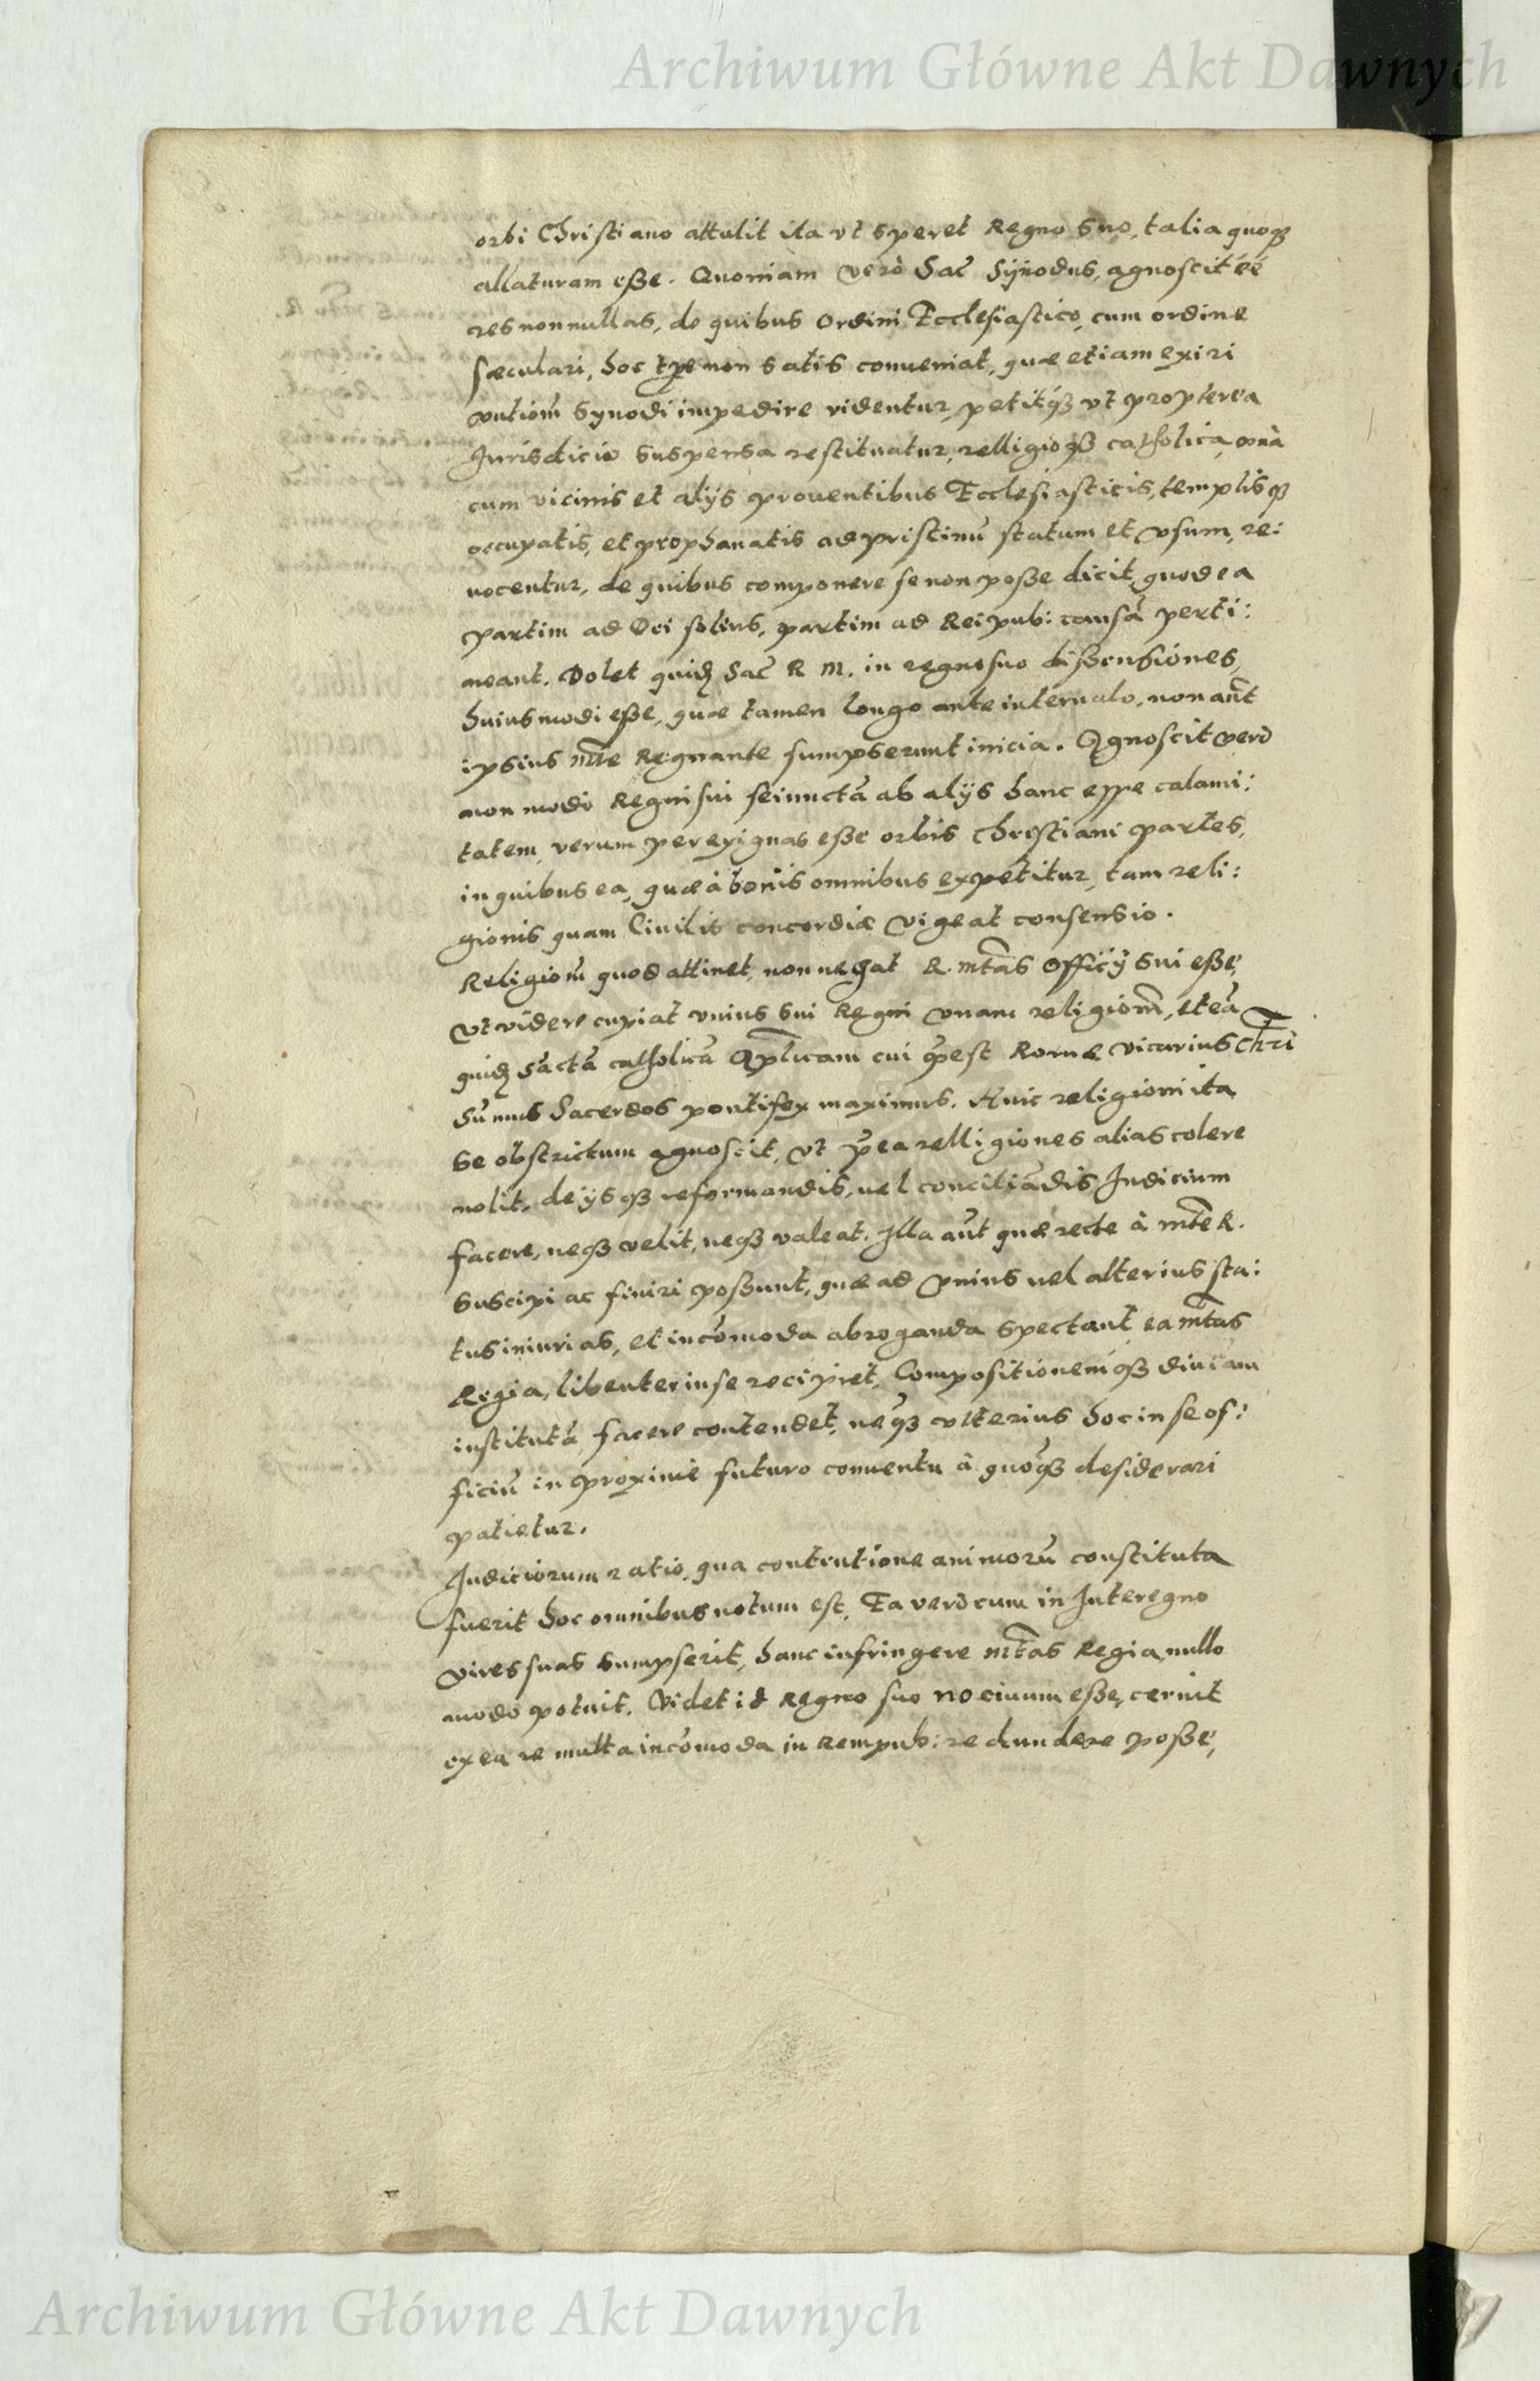 Archiwum Główne Akt Dawnych
orbi Christiano attulit ita vt speret Regno suo, talia quoqꝫ
allaturam eße. Quoniam verò Sac̃ Sÿnodus, agnoscit eẽ
res nonnullas, de quibus Ordini Ecclesiastico, cum ordine
sæculari, hoc tꝑe non satis conueniat, quæ etiam exiri
vntiom̃ Synodi impedire videntur, petitqꝫ vt propterea
Jurisdicio suspensa restituatur, relligioqꝫ catholica, vnà
cum vicinis et alijs prouentibus Ecclesiasticis, templisqꝫ
occupatis, et prophanatis ad pristinũ statum et vsum, re:
uocentur, de quibus componere se non poße dicit, quod ea
partim ad Dei solius, partim ad Reipub: causã perti:
neant. Dolet quid̃ Sac̃ R M. in regno suo dißensiones,
huiusmodi eße, quæ tamen longo ante interualo, non aũt
ipsius mt̃e Regnante sumpserunt inicia. Agnoscit verò
non modo Regni sui seiunctã ab alijs hanc eſſe calami:
tatem, verum perexiguas eße orbis Christiani partes,
in quibus ea, quæ à bonis omnibus expetitur, tam reli:
gionis quam Ciuilis concordiæ vigeat consensio.
Religiom̃ quod attinet, non negat R. mt̃as Officÿ sui eße,
vt videre cupiat vnius sui Regni vnam religiom̃, et eã
quid̃ Sactã catholicã Apl̃icam cui p̃est Romæ vicarius Chr̃i
Sũmus Sacerdos pontifex maximus. Huic religioni ita
se obstrictum agnoscit, vt p̃ ea relligiones alias colere
nolit, de ijsqꝫ reformandis, uel conciliãdis Judicium
facere, neqꝫ velit, neqꝫ valeat. Illa aũt quæ recte à mt̃e R.
suscipi ac finiri poßunt, quæ ad vnius uel alterius sta:
tus iniurias, et incõmoda abroganda spectant ea mt̃as
Regia, libenter in se recipiet, Compositionemqꝫ diu iam
institutã facere contendet, neqꝫ vlterius hoc in se of:
ficiũ in proxime futuro conuentu à quoqꝫ desiderari
patietur.
Judiciorum ratio, qua contentione animorũ constituta
fuerit hoc omnibus notum est, Ea verò cum in Interegno
vires suas sumpserit, hanc infringere mt̃as Regia, nullo
modo potuit. Videt id Regno suo nociuum eße, cernit
ex ea re multa incõmoda in Rempub: redundere poße,
Archiwum Główne Akt Dawnych